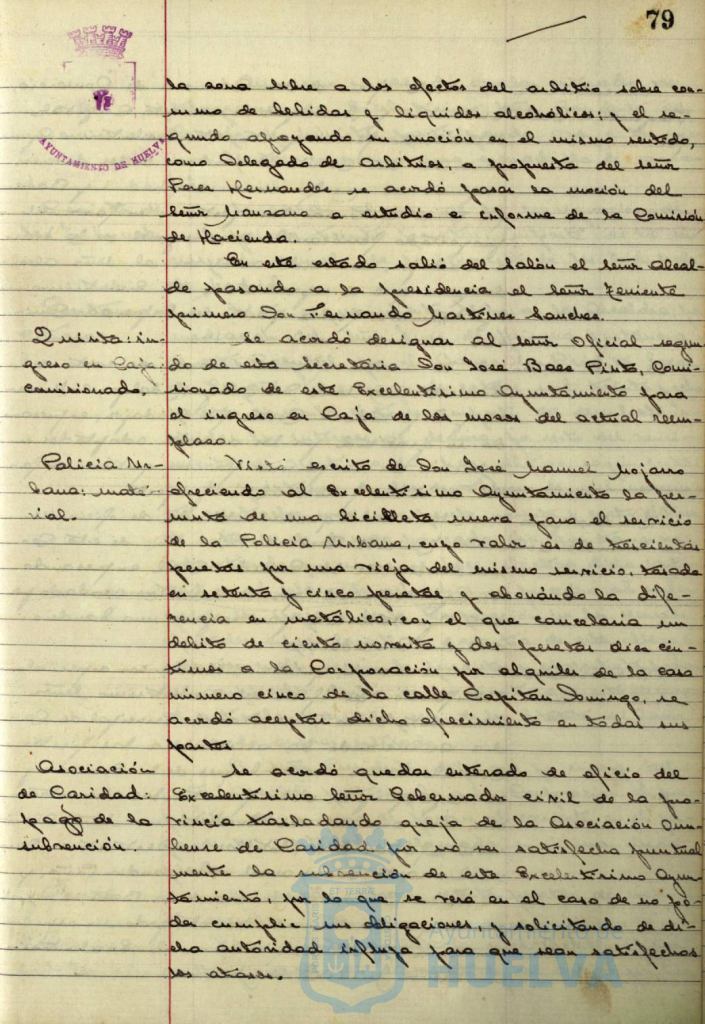 79
AYUNTAMIENTO DE HUELVA
la zona libre a los efectos del arbitrio sobre con-
sumo de bebidas y líquidos alcohólicos; y el se-
gundo apoyando su moción en el mismo sentido,
como Delegado de Arbitrios, a propuesta del señor
Perez Hernandez se acordó pasar la moción del
señor Manzano a estudio e informe de la Comisión
de Hacienda.
En este estado salió del salón el señor Alcal-
de pasando a la presidencia el señor Teniente
primero Don Fernando Martinez Sanchez.
Quinta: in-
greso en Caja:
comisionado.
Se acordó designar al señor Oficial segun-
do de esta Secretaria Don José Baez Pinto, Comi-
sionado de este Excelentísimo Ayuntamiento para
el ingreso en Caja de los mozos del actual reem-
plazo.
Policia Ur-
bana: mate-
rial.
Visto escrito de Don José Manuel Mojarro
ofreciendo al Excelentísimo Ayuntamiento la per-
muta de una bicicleta nueva para el servicio
de la Policia Urbana, cuyo valor es de trescientas
pesetas por una vieja del mismo servicio, tasada
en setenta y cinco pesetas y abonándo la dife-
rencia en metálico, con el que cancelaria un
débito de ciento noventa y dos pesetas diez cén-
timos a la Corporación por alquiler de la casa
número cinco de la calle Capitán Domingo, se
acordó aceptar dicho ofrecimiento en todas sus
partes
Asociación
de Caridad:
pago de la
subvención.
Se acordó quedar enterado de oficio del
Excelentísimo Señor Gobernador civil de la pro-
vincia trasladando queja de la Asociación Onu-
bense de Caridad por no ser satisfecha puntual
mente la subvención de este Excelentísimo Ayun-
tamiento, por lo que se verá en el caso de no po-
der cumplir sus obligaciones, y solicitando de di-
cha autoridad influya para que sean satisfechos
los atrasos.
HUELVA